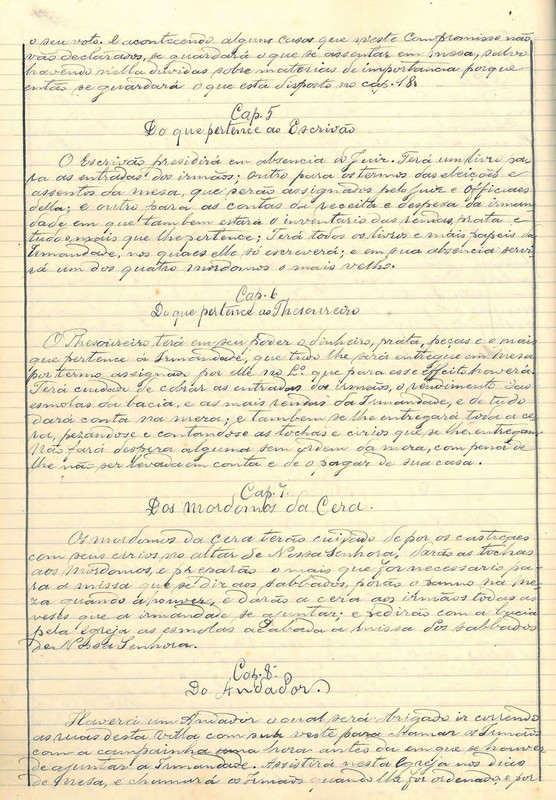 o seu voto. E acontecendo alguns casos que neste Compromisso não
vão declarados, se guardará o que se assentar em mesa, salvo
havendo nella duvidas sobre materias de importancia porque
então se guardará o que esta disposto no cap. 18.
Cap. 5
Do que pertence ao Escrivão
O Escrivão presidirá em absencia do Juiz. Terá um livro pa-
ra as entradas dos irmãos; outro para os termos das eleições e
assentos da mesa, que serão assignados pelo Juiz e Officiaes
della; e outro para as contas da receita e despesa da irman-
dade em que tambem estará o inventario das rendas, prata e
tudo o mais que lhe pertence; Terá todos os livros e mais papeis da
Irmandade, nos quaes elle só escreverá; e em sua absencia servi-
rá um dos quatro mordomos o mais velho.
Cap. 6
Do que pertence ao Thesoureiro
O Thesoureiro terá em seu poder o dinheiro, prata, peças e o mais
que pertence á Irmandade, que tudo lhe será entregue em mesa
por termo assignado por elle no Lº. que para esse effeito haverá.
Terá cuidado de cobrar as entradas dos irmãos, o rendimento das
esmolas da bacia, e as mais rendas da Irmandade, e de tudo
dará conta na meza; e tambem se lhe entregará toda a ce-
ra, pezandose e contandose as tochas e cirios que se lhe entregam.
Não fará despeza alguma sem ordem da meza, com pena de
lhe não ser levada em conta e de o pagar de sua casa.
Cap. 7.
Dos Mordomos da Cera.
Os mordomos da Cera terão cuidado de por os castiçaes
com seus cirios no altar de Nossa Senhora, darão as tochas
aos Mordomos, e preparão o mais que for necessario pa-
ra a missa que se diz aos sabbados, porão o panno na me-
za quando a houver, e darão a cera aos irmãos todas as
vezes que a irmandade se ajuntar; e pedirão com a bacia
pela Igreja as esmolas acabada a missa dos sabbados
de Nossa Senhora.
Cap. 8.
Do Andador.
Haverá um Andador o qual será obrigado ir correndo
as ruas desta villa com sua veste para chamar os Irmãos
com a campainha uma hora antes da em que se houver
de ajuntar a Irmandade. Assistirá nesta Igreja nos dias
de Mesa, e chamará os Irmãos quando lhe for ordenado, e por